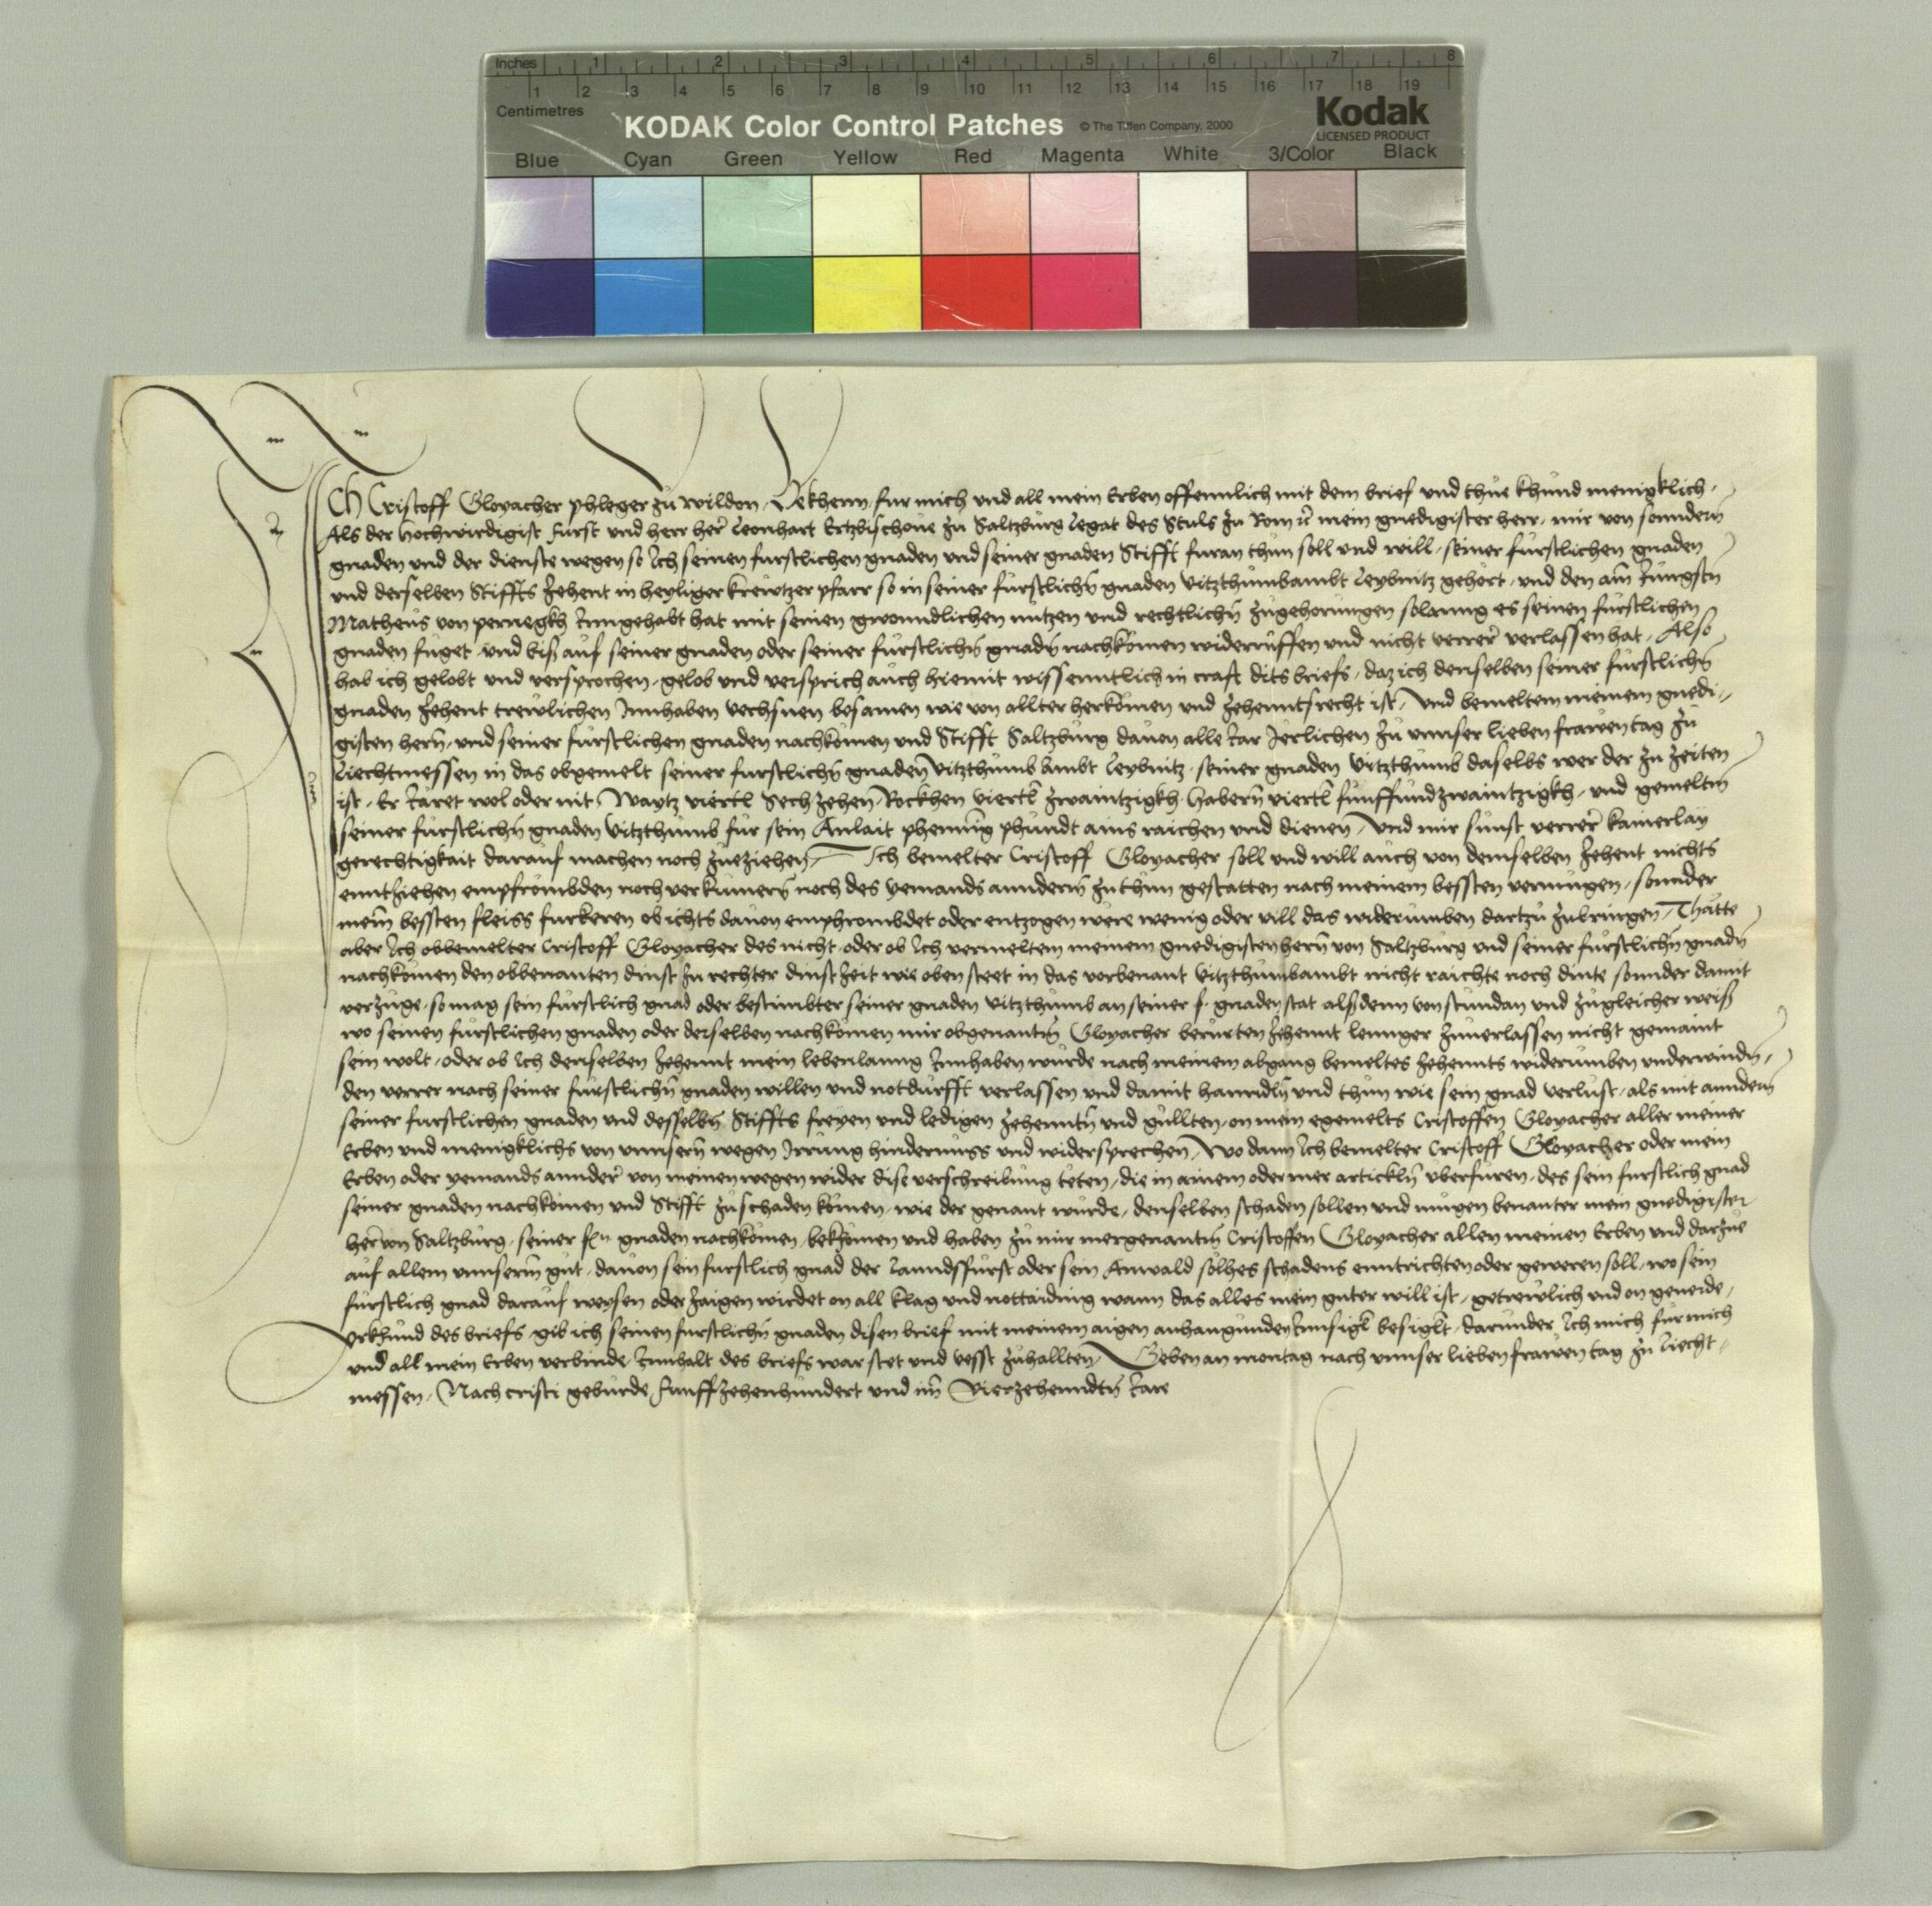 Inches 1 2 3 4 5 6 7 8
1 2 3 4 5 6 7 8 9 10 11 12 13 14 15 16 17 18 19
Centimetres
KODAK Color Control Patches © The Tiffen Company, 2000 Kodak
LICENSED PRODUCT
Blue Cyan Green Yellow Red Magenta White 3/Color Black
Ich Cristoff Gloyacher phleger zu Wildon, Bekhenn fur mich und all mein Erben offennlich mit dem brief und thue khund menigklich,
Als der Hochwirdigist Furst und herr her Leonhart Ertzbischove zu Saltzburg Legat des Stuls zu Rom mein gnedigister herr, mir von sonndern
gnaden und der dienste wegen so Ich seinen furstlichen gnaden und seiner gnaden Stifft furan thun soll und will, seiner furstlichen gnaden
und derselben Stiffts Zehent in heyliger krewtzer pfarr so in seiner furstlichn gnaden Vitzthumbambt Leybnitz gehort, und den am Jungsten
Matheus von pernegkh Inngehabt hat mit seinen gwonndlichen nutzen und rechtlichn zugehorungen solanng es seinen furstlichen
gnaden fuget und biß auf seiner gnaden oder seiner furstlichn gnadn nachkomen widerruffen und nicht verrer verlassen hat, Also
hab ich gelobt und versprochen, gelob und versprich auch hiemit wissenntlich in craft dits briefs, daz ich denselben seiner furstlichn
gnaden Zehent trewlichen Innhaben vechsnen besamen wie von allter herkomen und Zehenntsrecht ist, Und bemeltem meinem gnedi-
gisten hern, und seiner furstlichen gnaden nachkomen und Stifft Saltzburg davon alle Jar Jerlichen zu unnser lieben frawen tag zu
Liechtmessen in das obgemelt seiner furstlichn gnaden Vitzthumb Ambt Leybnitz, seiner gnaden Vitzthumb daselbs wer der zu zeiten
ist, Er Jaret wol oder nit, Waytz viertl Sechzehen, Rockhen viertl zwaintzigkh, Habern viertl funffundzwaintzigkh, und gemeltn
seiner furstlichn gnaden Vitzthumb fur sein Anlait phennig phundt ains raichen und dienen, Und mir sunst verrer kainerlay
gerechtigkait darauf machen noch zueziehen, Ich bemelter Cristoff Gloyacher soll und will auch von demselben Zehent nichts
enntziehen empfrombden noch verkumern noch des yemands anndern zuthun gestatten nach meinem bessten vermugen, sonnder
mein bessten fleiss furkeren ob ichts davon emphrombdet oder entzogen were wenig oder vill das widerumben dartzu zubringen, Thatte
aber Ich obbemelter Cristoff Gloyacher des nicht, oder ob Ich vermeltem meinem gnedigisten hern von Saltzburg und seiner furstlichn gnadn
nachkomen den obbenanten dinst zu rechter dinst Zeit wie oben steet in das vorbenant Vitzthumbambt nicht raichte noch dinte sonnder damit
verzuge, so mag sein furstlich gnad oder bestimbter seiner gnaden Vitzthumb an seiner f. gnaden stat alßdenn von stundan und zugleicher weiß
wo seinen furstlichen gnaden oder derselben nachkomen mir obgenantm Gloyacher berurten Zehennt lennger zuverlassen nicht gemaint
sein wolt, oder ob Ich denselben Zehennt mein lebenlanng Innhaben wurde nach meinem abgang bemeltes Zehennts widerumben underwindn,
den verrer nach seiner furstlichn gnaden willen und notdurfft verlassen und damit hanndln und thun wie sein gnad verlust, als mit anndern
seiner furstlichen gnaden und desselbn Stiffts freyen und ledigen Zehenntn und gullten, on mein egemelts Cristoffen Gloyacher aller meiner
Erben und menigklichs von unnsern wegen Irrung hindernuss und widersprechen, Wo dann Ich bemelter Cristoff Gloyacher oder mein
Erben oder yemands annder von meinen wegen wider dise verschreibung teten, die in ainem oder mer articklen uberfuren, des sein furstlich gnad
seiner gnaden nachkomen und Stifft zuschaden komen, wie der genant wurde, denselben schaden sollen und mugen benanter mein gnedigister
her von Saltzburg, seiner gnaden nachkomen, bekomen und haben zu mir mergenantm Cristoffen Gloyacher allen meinen Erben und darzue
auf allem unnserm gut, davon sein furstlich gnad der Lanndsfurst oder sein Anwald solhes schadens enntrichten oder geweren soll, wo sein
furstlich gnad darauf weysen oder zaigen wirdet on all klag und nottaiding wann das alles mein guter will ist, getrewlich und on geverde,
Urkhund des briefs, gib ich seinen furstlichn gnaden disen brief mit meinem aigen anhangunden Innsigl besiglt, darunder Ich mich fur mich
und all mein Erben verbinde Innhalt des briefs war stet und vesst zuhallten, Geben an montag nach unnser lieben frawen tag zu Liecht-
messen, Nach cristi geburde funffzehenhundert und im Vierzehenndtn Jare